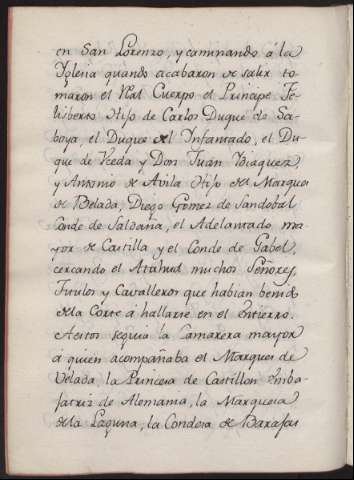 en San Lorenzo, y caminando á la
Yglesia quando acabaron de salir to-
maron el Rl. Cuerpo el Principe Fe-
lisberto Hijo de Carlos Duque de Sa-
boya, el Duque del Ynfantado, el Du-
que de Uceda y Don Juan Ydiaquez,
y Antonio de Avila Hijo del Marques
de Belada, Diego Gomez de Sandobal
Conde de Saldaña, el Adelantado ma-
yor de Castilla y el Conde de Gabel,
cercando el Atahud muchos Señores,
Titulos y Cavalleros que habian benido
de la Corte á hallarse en el Entierro.
Aestos seguia la Camarera mayor
á quien acompañaba el Marques de
Velada, la Princesa de Castillon Emba-
jatriz de Alemania, la Marquesa
de la Laguna, la Condesa de Barajas